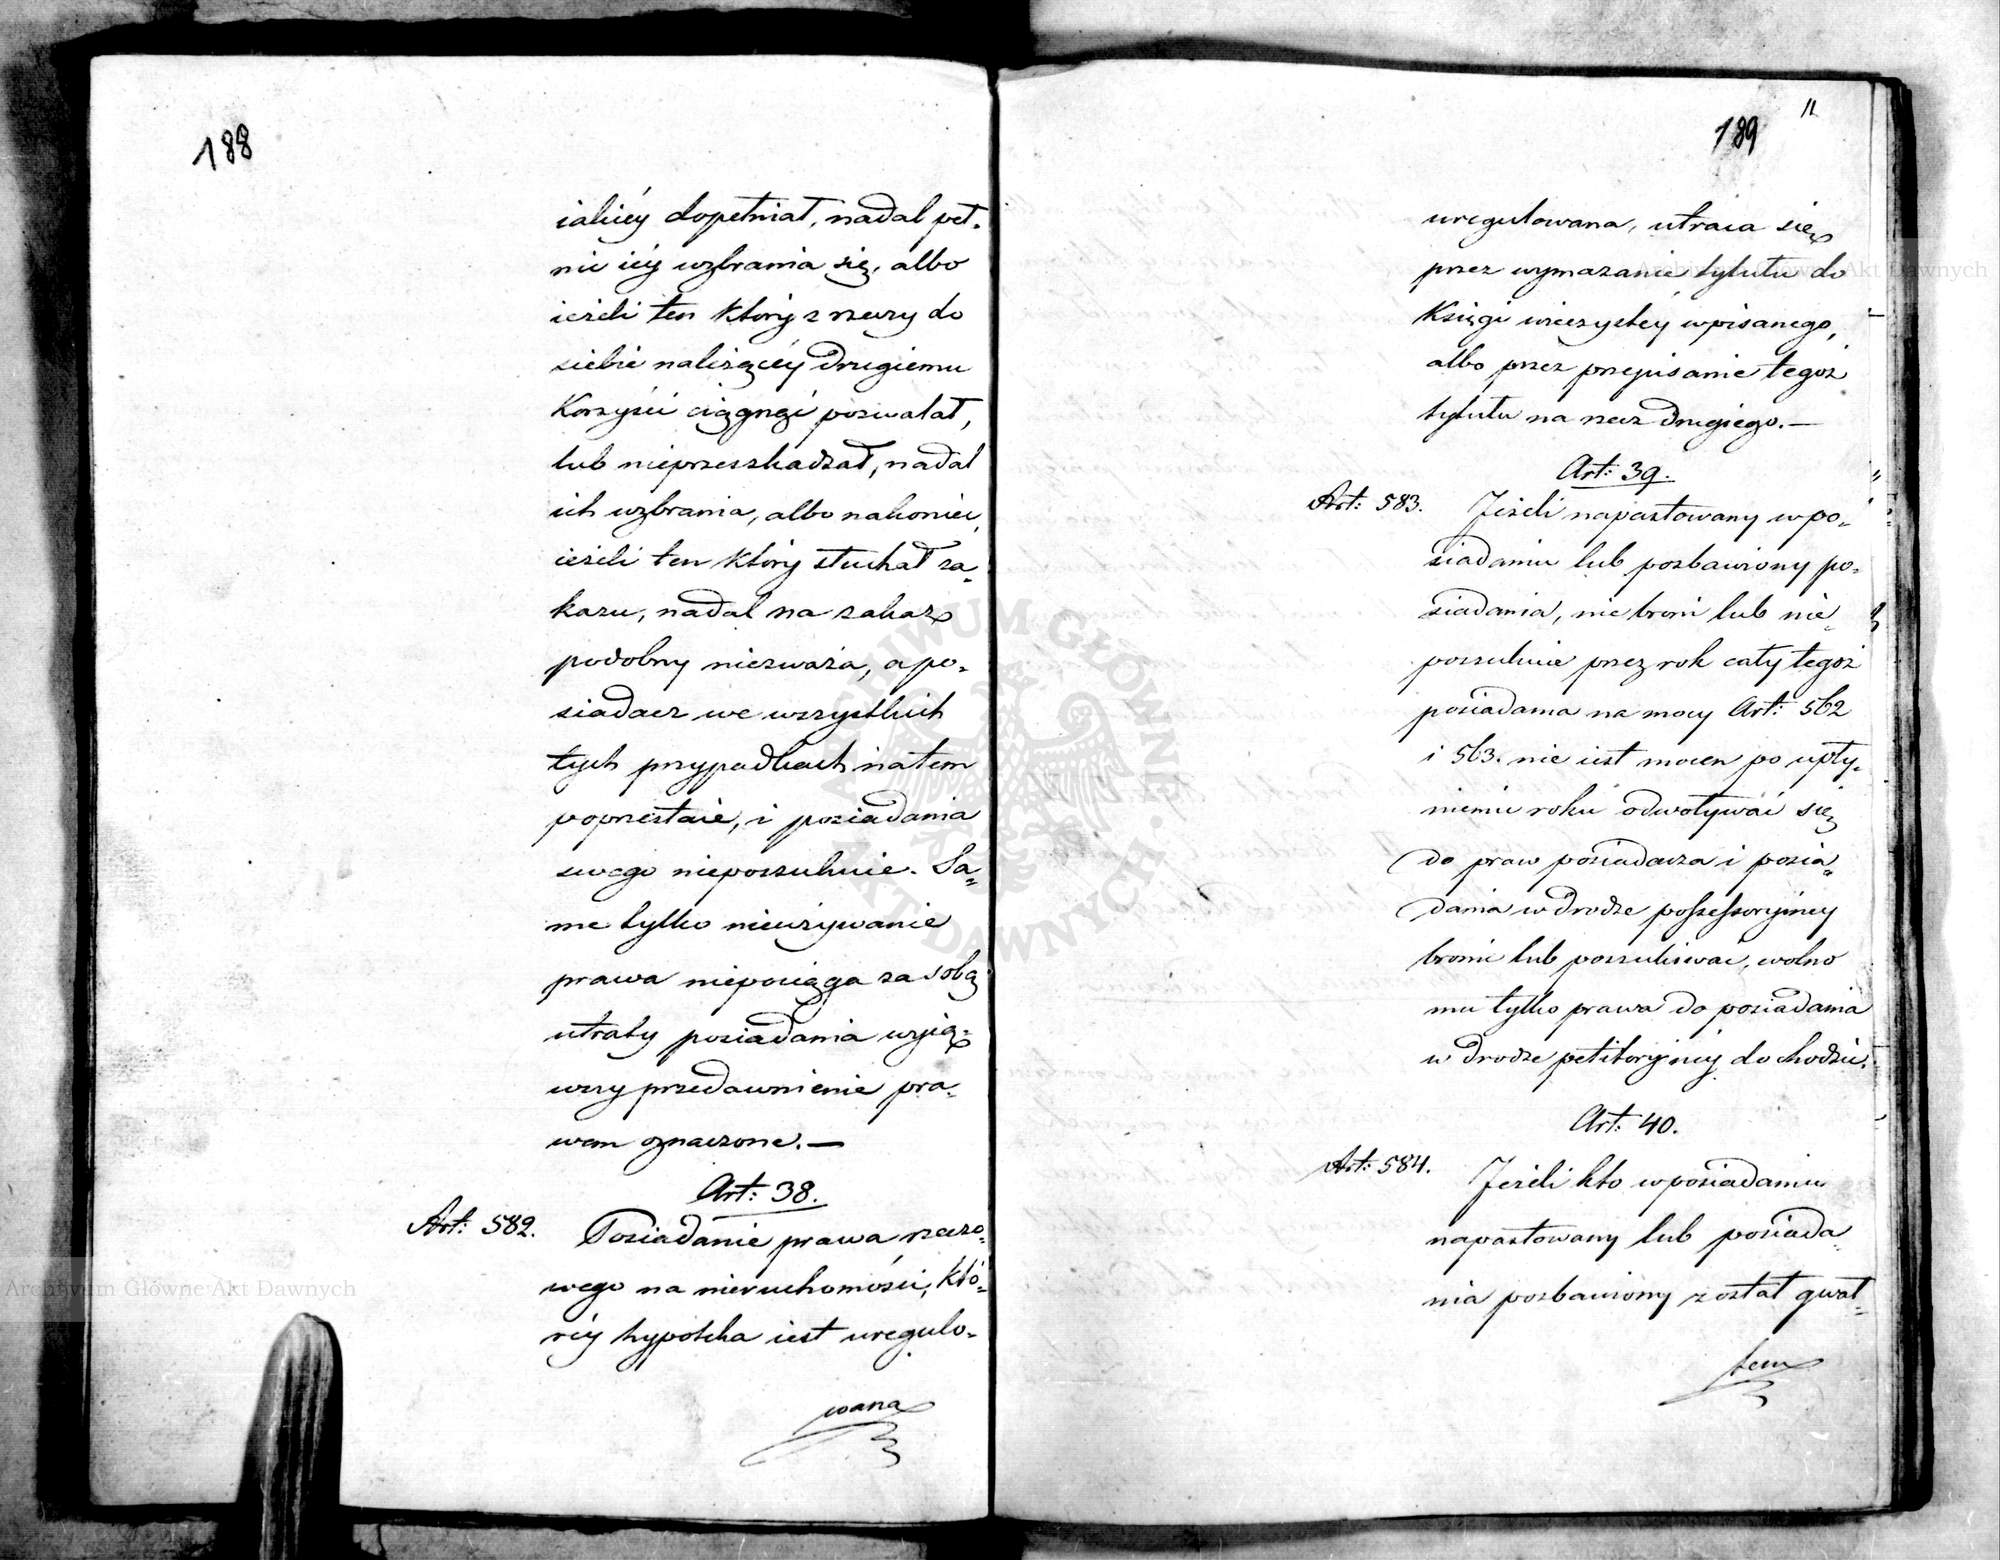 188
iakiéy dopełniał, nadal peł-
nić iéy wzbrania się, albo
ieżeli ten który z rzeczy do
siebie należącéy drugiemu
korzyści ciągnąć pozwalał,
lub nieprzeszkadzał, nadal
ich wzbrania, albo nakoniec,
ieżeli ten który słuchał za-
kazu, nadal na zakaz
podobny niezważa, a po-
siadacz we wszystkich
tych przypadkach natem
poprzestaie, i posiadania
swego nieposzukuie. Sa-
me tylko nieużywanie
prawa niepociąga za sobą
utraty posiadania wyią-
wszy przedawnienie pra-
wem oznaczone.—
Art: 38.
Art: 582. Posiadanie prawa rzeczo-
wego na nieruchomości, któ-
réy hypoteka iest uregulo-
wana
189
11
uregulowana, utraca się
przez wymazanie tytułu do
Księgi wieczystéy wpisanego,
albo przez przepisanie tegoż
tytułu na rzecz drugiego.—
Art: 39.
Art: 583. Jeżeli napastowany w po-
siadaniu lub pozbawiony po-
siadania, nie broni lub nie-
poszukuie przez rok cały tegoż
posiadania na mocy Art: 562
i 563. nie iest mocen po upły-
nieniu roku odwoływać się
do praw posiadacza i posia-
dania w drodze possessoryjney
bronić lub poszukiwać, wolno
mu tylko prawa do posiadania
w drodze petitoryjnéy dochodzić.
Art: 40.
Art: 584. Jeżeli kto w posiadaniu
napastowany lub posiada-
nia pozbawiony został gwał-
tem
Archiwum Główne Akt Dawnych
Archiwum Główne Akt Dawnych
ARCHIWUM GŁÓWNE AKT DAWNYCH